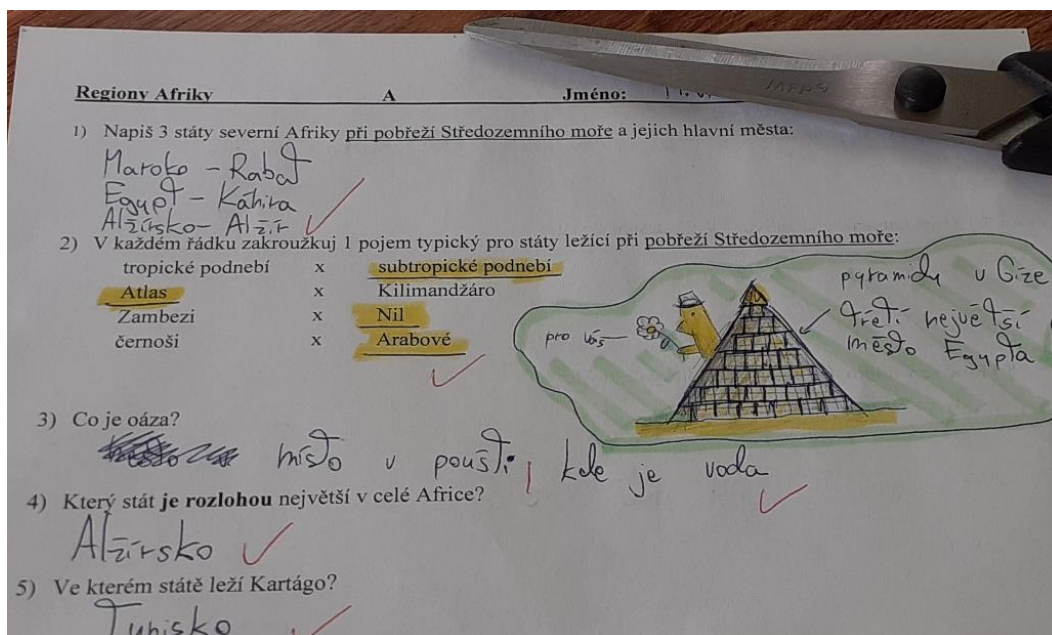 Regiony Afriky A Jméno:
1) Napiš 3 státy severní Afriky při pobřeží Středozemního moře a jejich hlavní města:
Maroko - Rabat
Egypt - Káhira
Alžírsko - Alžír
2) V každém řádku zakroužkuj 1 pojem typický pro státy ležící při pobřeží Středozemního moře:
tropické podnebí x subtropické podnebí
Atlas x Kilimandžáro
Zambezi x Nil
černoši x Arabové
pro vás
pyramidy v Gíze
třetí největší
město Egypta
3) Co je oáza?
místo v poušti, kde je voda
4) Který stát je rozlohou největší v celé Africe?
Alžírsko
5) Ve kterém státě leží Kartágo?
Tunisko